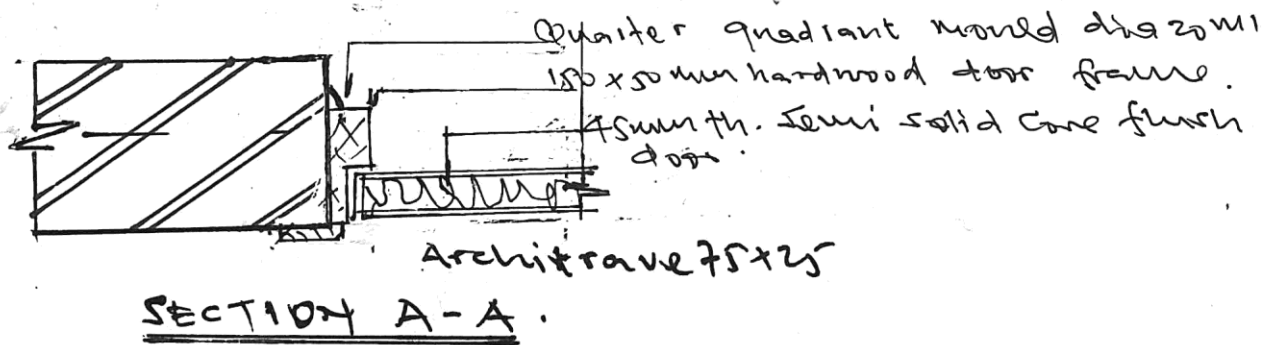 Quarter quadrant mould dia 20mm
150x50mm hardwood door frame.
45mm th. Semi solid core flush
door.
Architrave 75x25
SECTION A-A.